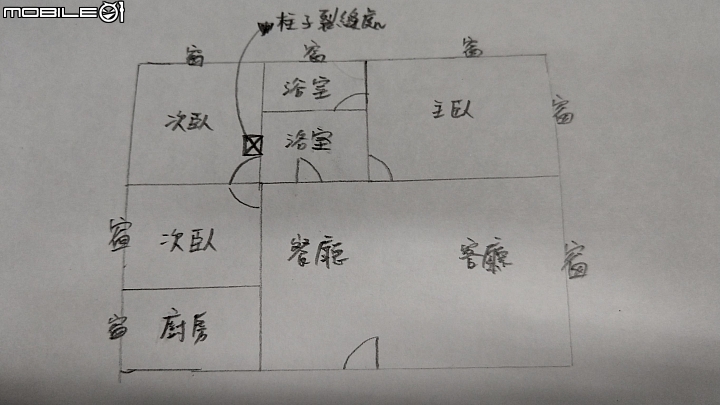 MOBILE01
柱子裂縫處
窗
窗
窗
次臥
浴室
主臥
窗
浴室
窗
次臥
餐廳
客廳
窗
窗
廚房